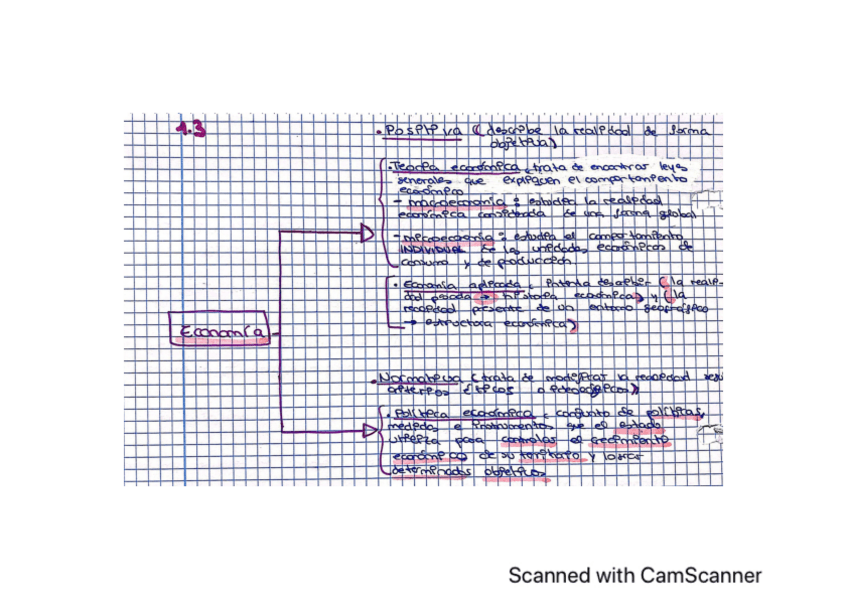 1.3
• Positiva (describe la realidad de forma
objetiva)
• Teoría económica: trata de encontrar leyes
generales que expliquen el comportamiento
económico
- macroeconomía: estudia la realidad
económica considerada de una forma global
- microeconomía: estudia el comportamiento
INDIVIDUAL de las unidades económicas de
consumo y de producción
• Economía aplicada: intenta describir (la reali-
dad pasada → historia económica) y (la
realidad presente de un entorno geográfico
→ estructura económica)
Economía
• Normativa (trata de modificar la realidad
criterios éticos o ideológicos)
• Política económica: conjunto de políticas,
medidas e instrumentos que el estado
utiliza para controlar el crecimiento
económico de su territorio y lograr
determinados objetivos
Scanned with CamScanner